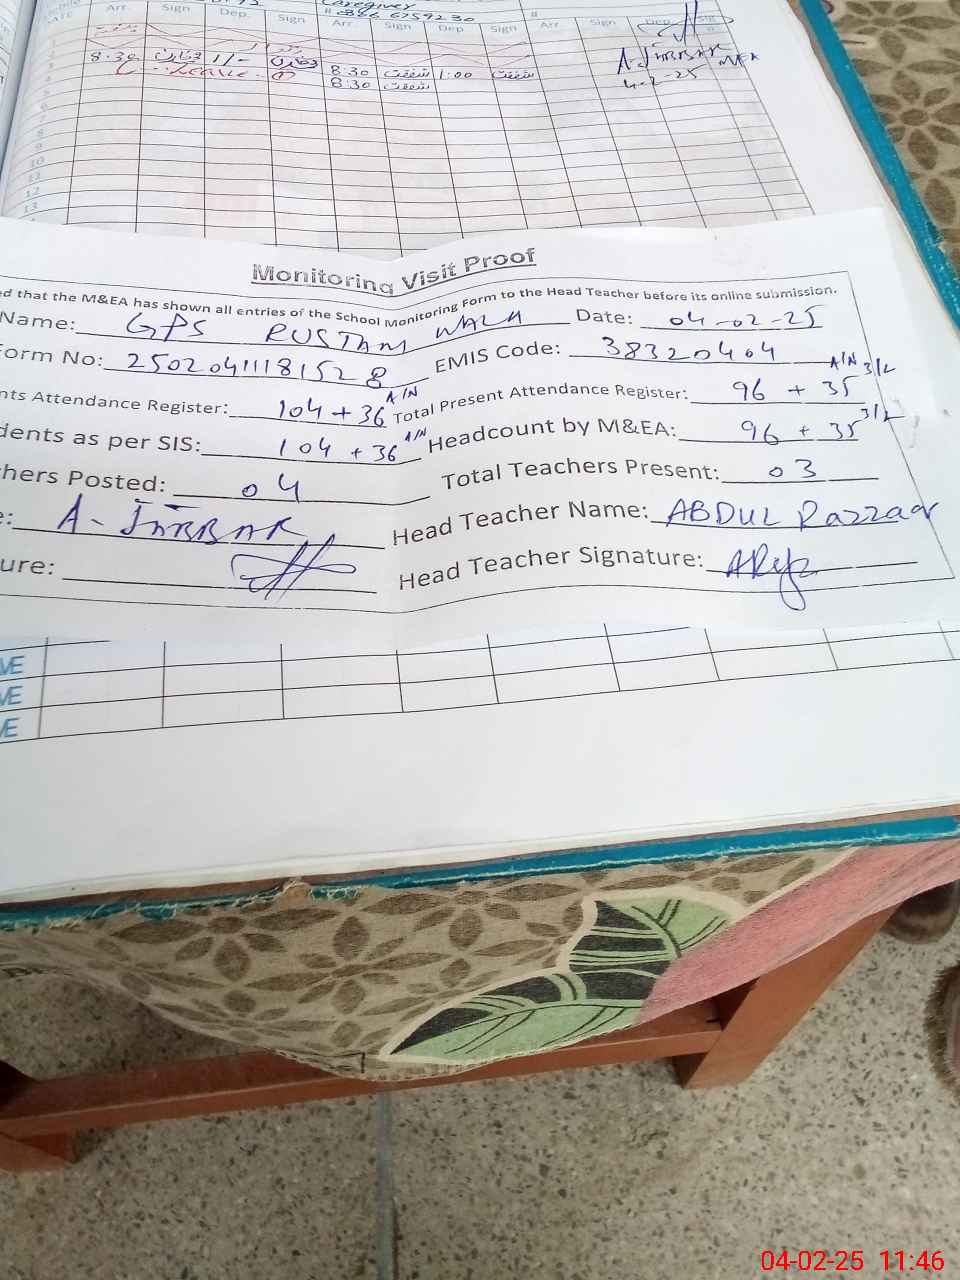 Caregiver
# 0346 6759230 #
Arr. Sign Dep. Sign Arr. Sign Dep Sign Arr. Sign Dep. Sign
8:30 1/-
Leave 8:30 شفقت 1:00 شفقت
8:30 شفقت
A. JABBAR MEA
4-2-25
6
7
8
9
10
11
12
13
Monitoring Visit Proof
ed that the M&EA has shown all entries of the School Monitoring Form to the Head Teacher before its online submission.
Name: GPS RUSTAM WALA Date: 04-02-25
Form No: 25020411181528 EMIS Code: 38320404
nts Attendance Register: 104 + 36 A/N Total Present Attendance Register: 96 + 35 A/N 3/2
dents as per SIS: 104 + 36 A/N Headcount by M&EA: 96 + 35 3/2
hers Posted: 04 Total Teachers Present: 03
e: A- JABBAR Head Teacher Name: ABDUL Razzaq
ure: Head Teacher Signature:
VE
VE
VE
04-02-25 11:46